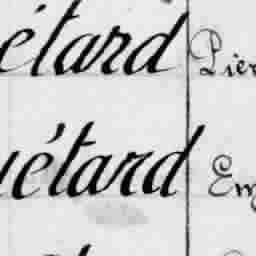 étard Pier
uétard Em